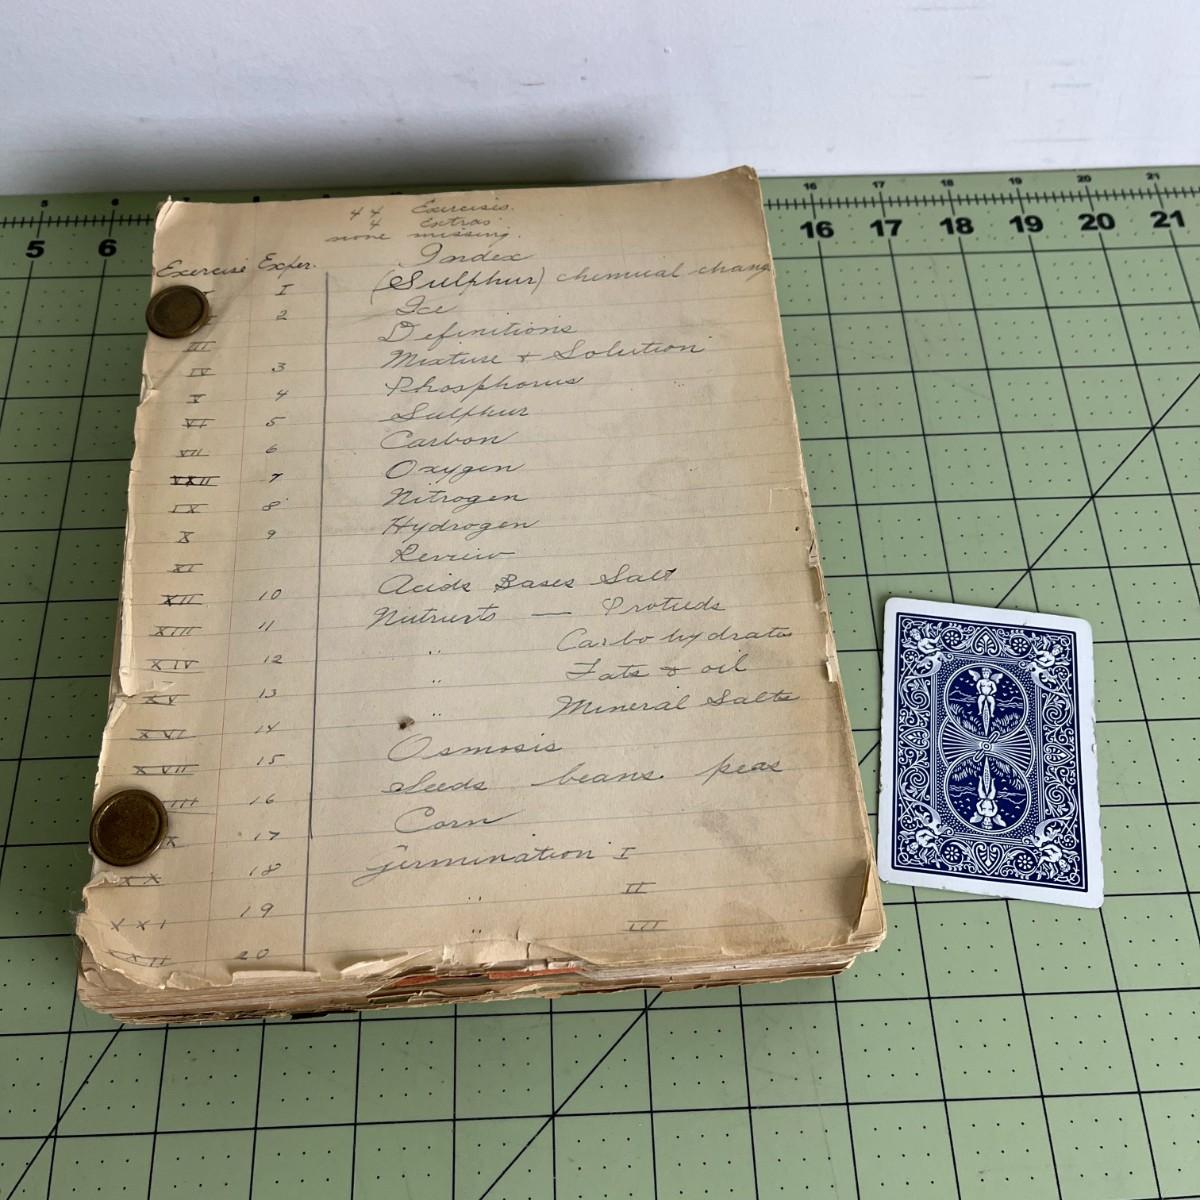 5 6 16 17 18 19 20 21
16 17 18 19 20 21
44 Exercises.
4 Extras
none missing.
Index
Exercise Exper.
I (Sulphur) chemical chang
2 Ice
III Definitions
IV 3 Mixture + Solution
V 4 Phosphorus
VI 5 Sulphur
VII 6 Carbon
VIII 7 Oxygen
IX 8 Nitrogen
X 9 Hydrogen
XI Review
XII 10 Acids Bases Salt
XIII 11 Nutrients — Protieds
XIV 12 " Carbohydrates
XV 13 " Fats & oil
XVI 14 " Mineral Salts
XVII 15 Osmosis
III 16 Seeds beans peas
X 17 Corn
XX 18 Germination I
XXI 19 " II
XII 20 " III